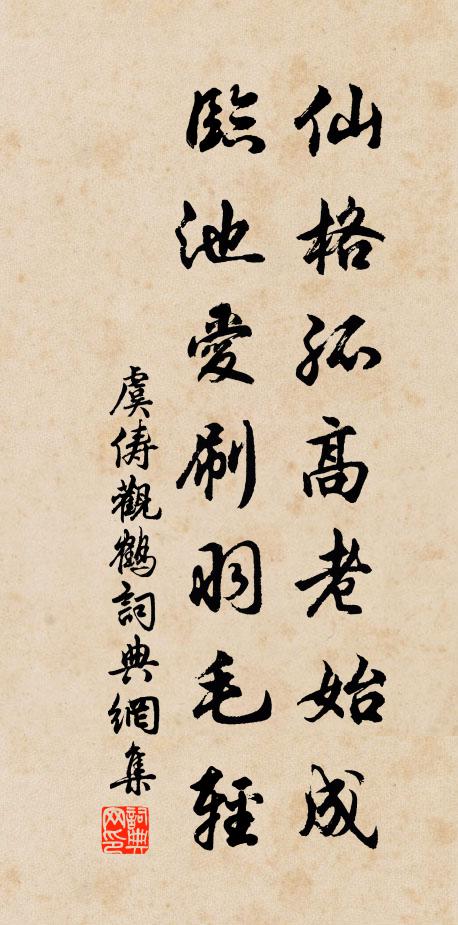 仙格孤高老始成
臨池愛刷羽毛輕
虞儔觀鶴詞典網集
詞典网印